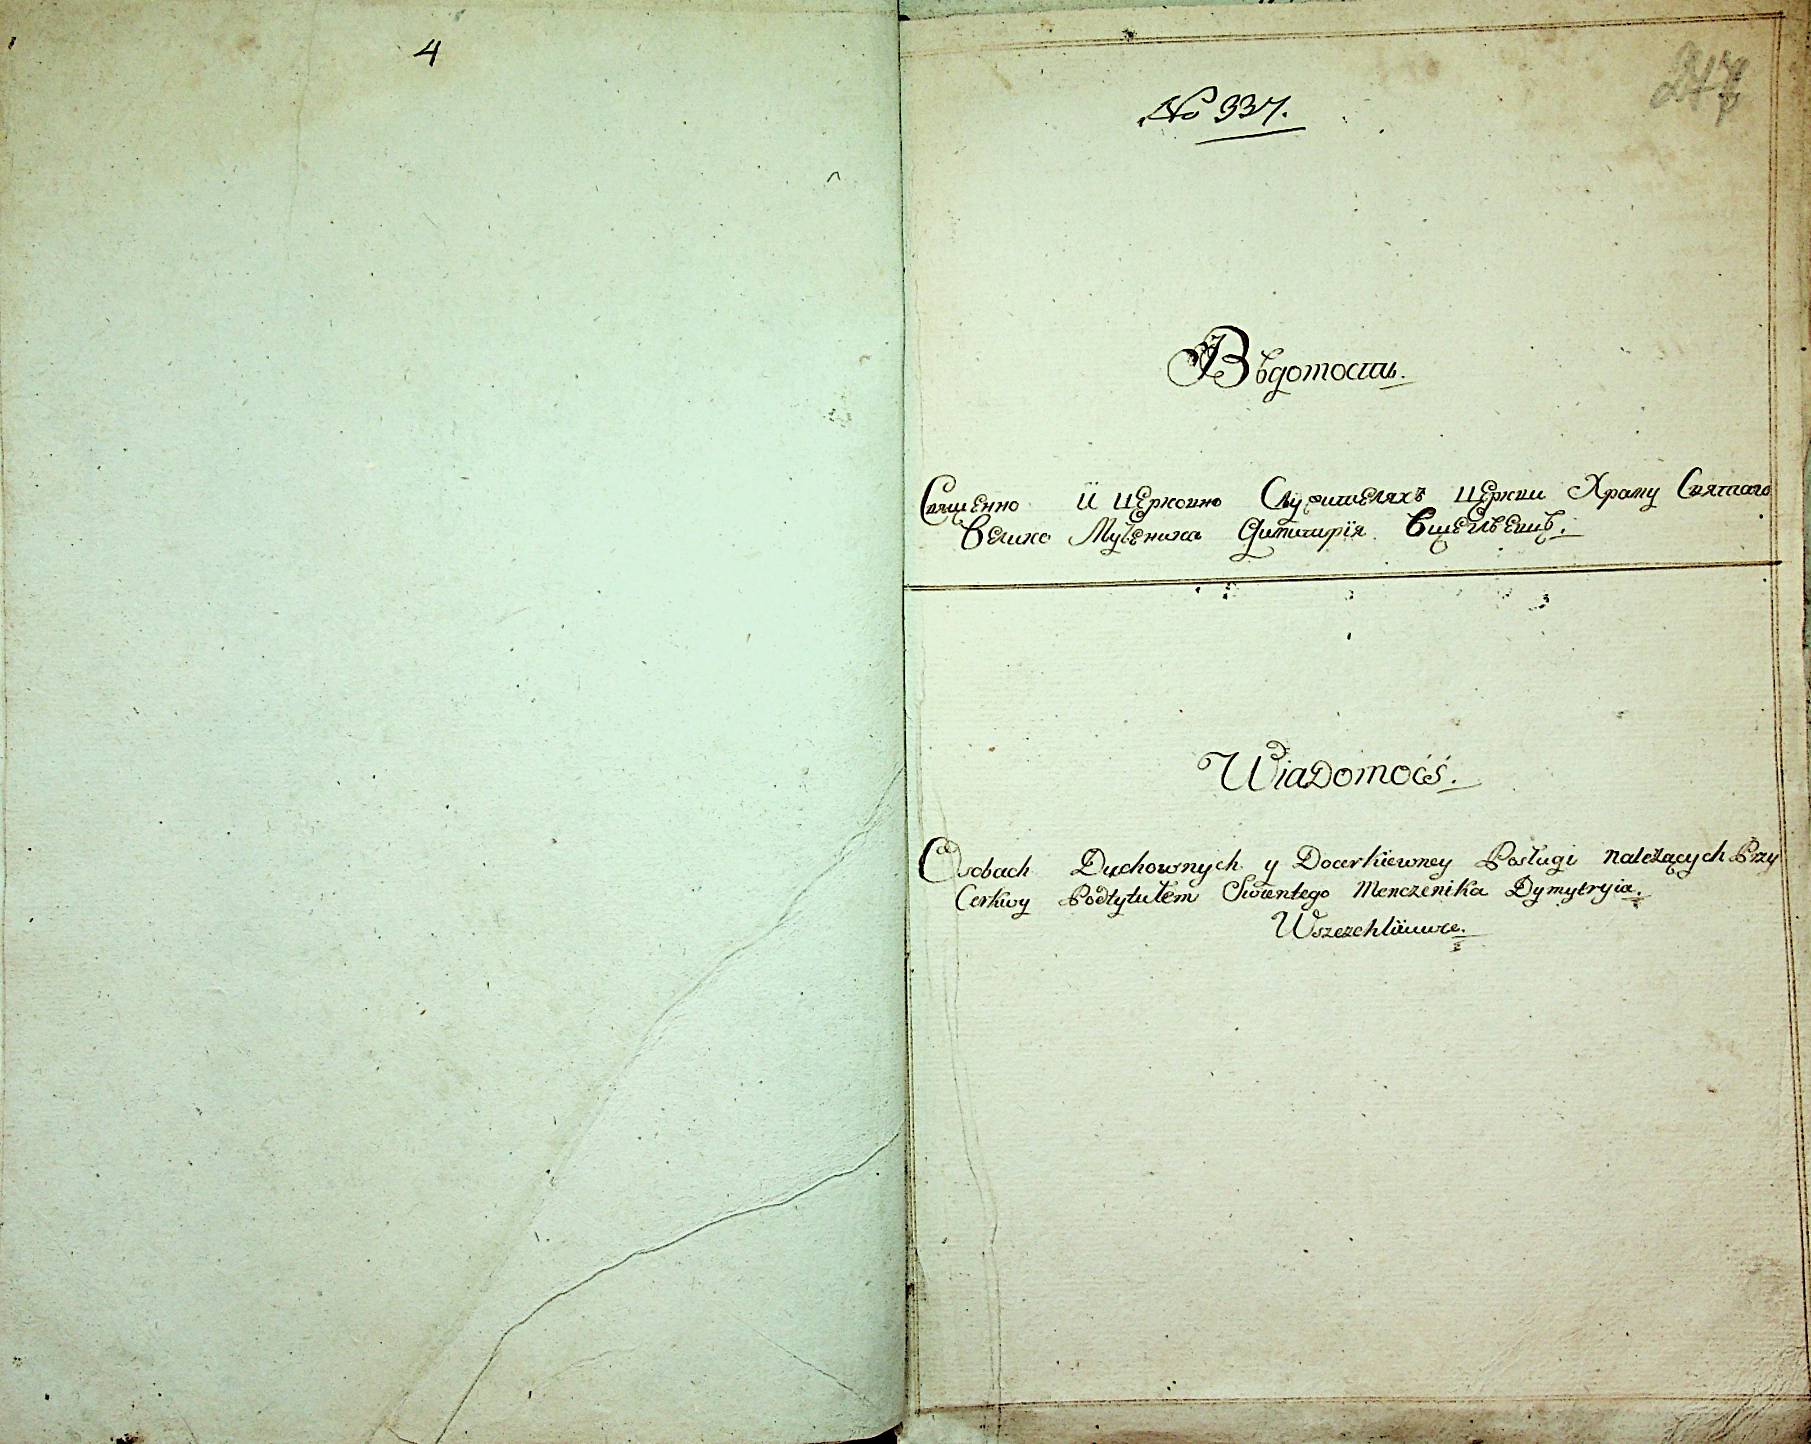 4
No 337.
247
Вѣдомость.
Священно И Церковно Служителяхъ Церкви Храму Святаго
Велико Мученика Димитрїя
Wiadomość.
Osobach Duchownych y Docerkiewney Posługi należących Przy
Cerkwy Podtytułem Swientego Menczenika Dymytryia.